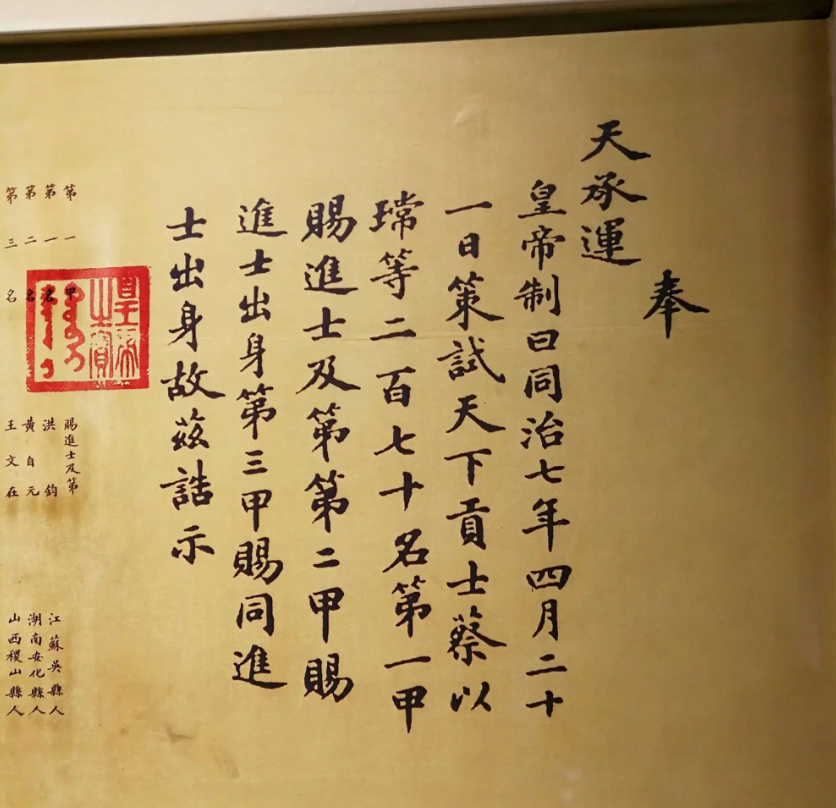 奉
天承運
皇帝制曰同治七年四月二十
一日策試天下貢士蔡以
瑺等二百七十名第一甲
賜進士及第第二甲賜
進士出身第三甲賜同進
士出身故茲誥示
第一甲 賜進士及第
第一名 洪鈞 江蘇吳縣人
第二名 黃自元 湖南安化縣人
第三名 王文在 山西稷山縣人
皇帝之寶